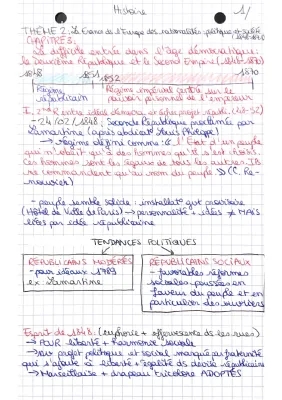 Histoire
1/
THÈME 2: La France ds l'Europe des nationalités: politique et société
CHAPITRE 3:
La difficile entrée dans l'âge démocratique:
la Deuxième République et le Second Empire (1848-1870)
1848 1851 1852 1870
Régime républicain
Régime impérial centré sur le pouvoir personnel de l'empereur
I. 2nde R entre idéal démocra. et (48-52)
- 24/02/1848: Seconde République proclamée par
Lamartine (après abdicat° Louis Philippe)
→ régime défini comme: « l'État d'un peuple
qui n'obéit qu'à des hommes qu'il s'est choisis.
Ces hommes sont les égaux de tous les autres. Ils
ne commandent qu'au nom du peuple » (C. Re-
nouvier)
- peuple semble solide: installat° gvt provisoire
(Hôtel de Ville de Paris) → personnalité + idées ≠ MAIS
liées par idée républicaine
TENDANCES POLITIQUES
RÉPUBLICAINS MODÉRÉS
- pour idéaux 1789
ex: Lamartine
RÉPUBLICAINS SOCIAUX
- favorables réformes
sociales poussées en
faveur du peuple et en
particulier des ouvriers
Esprit de 1848: (euphorie + effervescence ds les rues)
→ POUR liberté + harmonie sociale
→ sur projet politique et social marqué par fraternité
qui s'ajoute à liberté + égalité ds devise républicaine
→ Marseillaise + drapeau tricolore ADOPTÉS